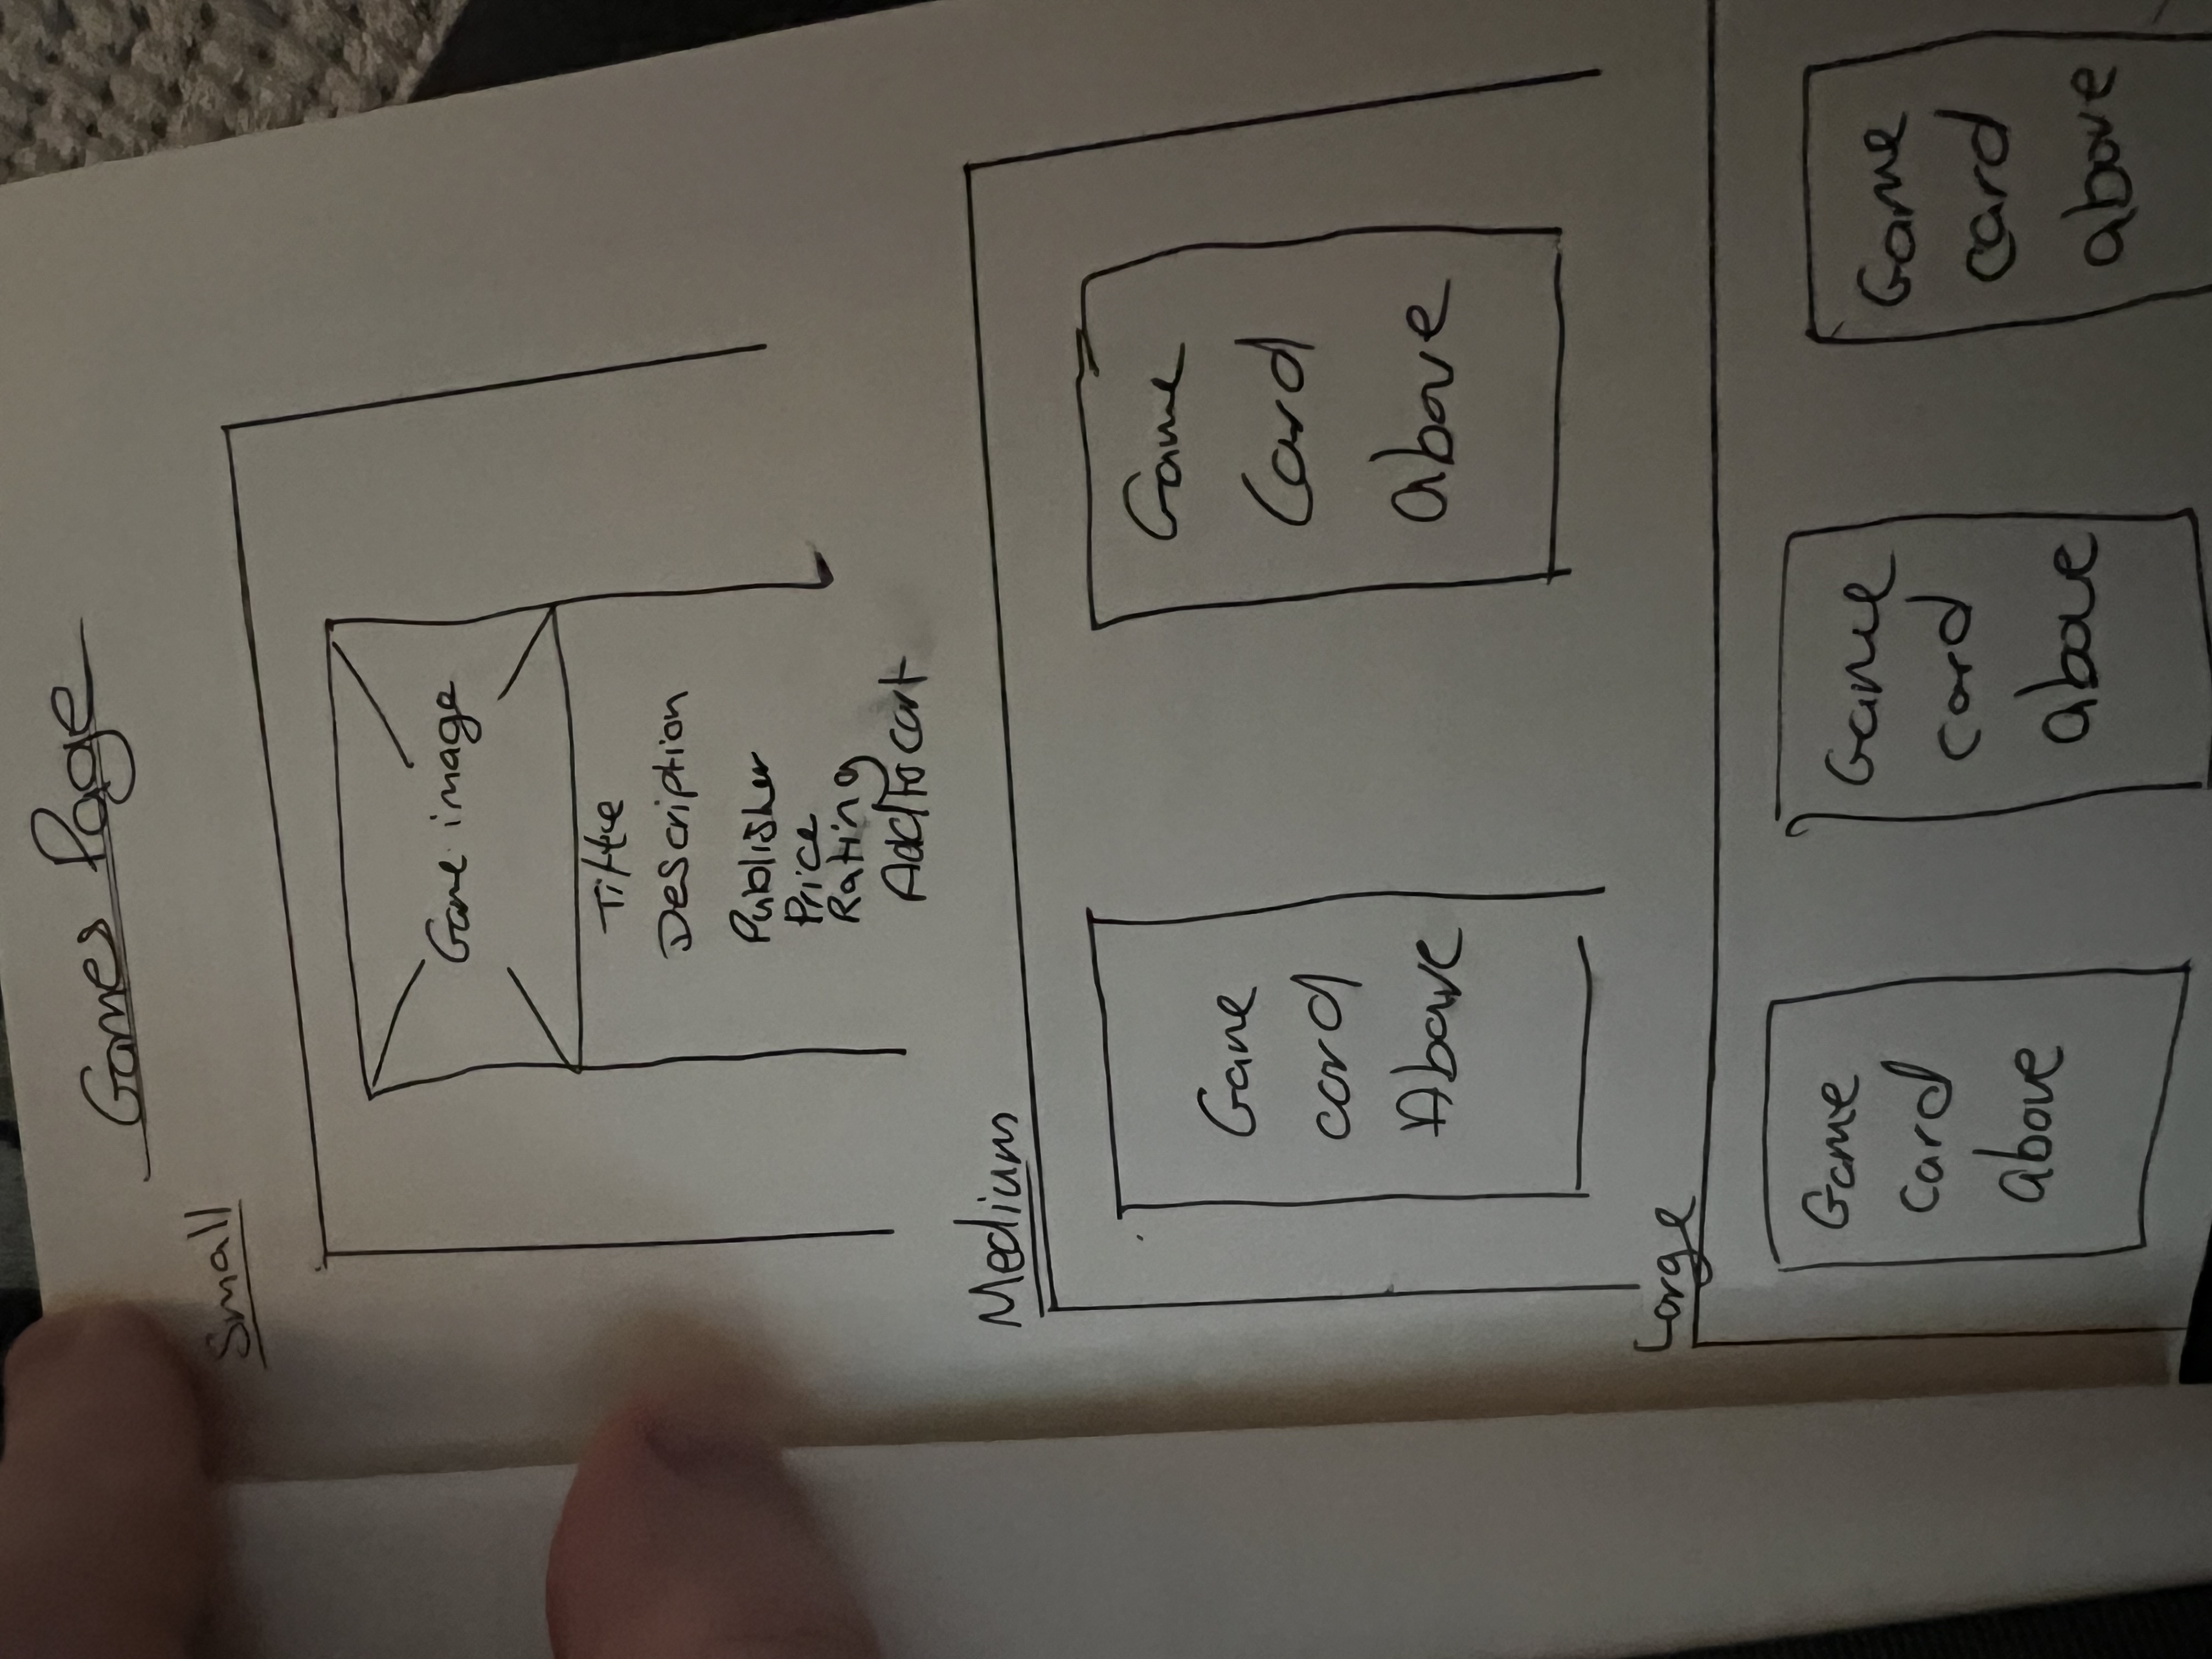 Games Page
Small
Game image
Tittle
Description
Publisher
Price
Rating
Add to cart
Medium
Game
card
Above
Game
Card
above
Large
Game
card
above
Game
card
above
Game
card
above